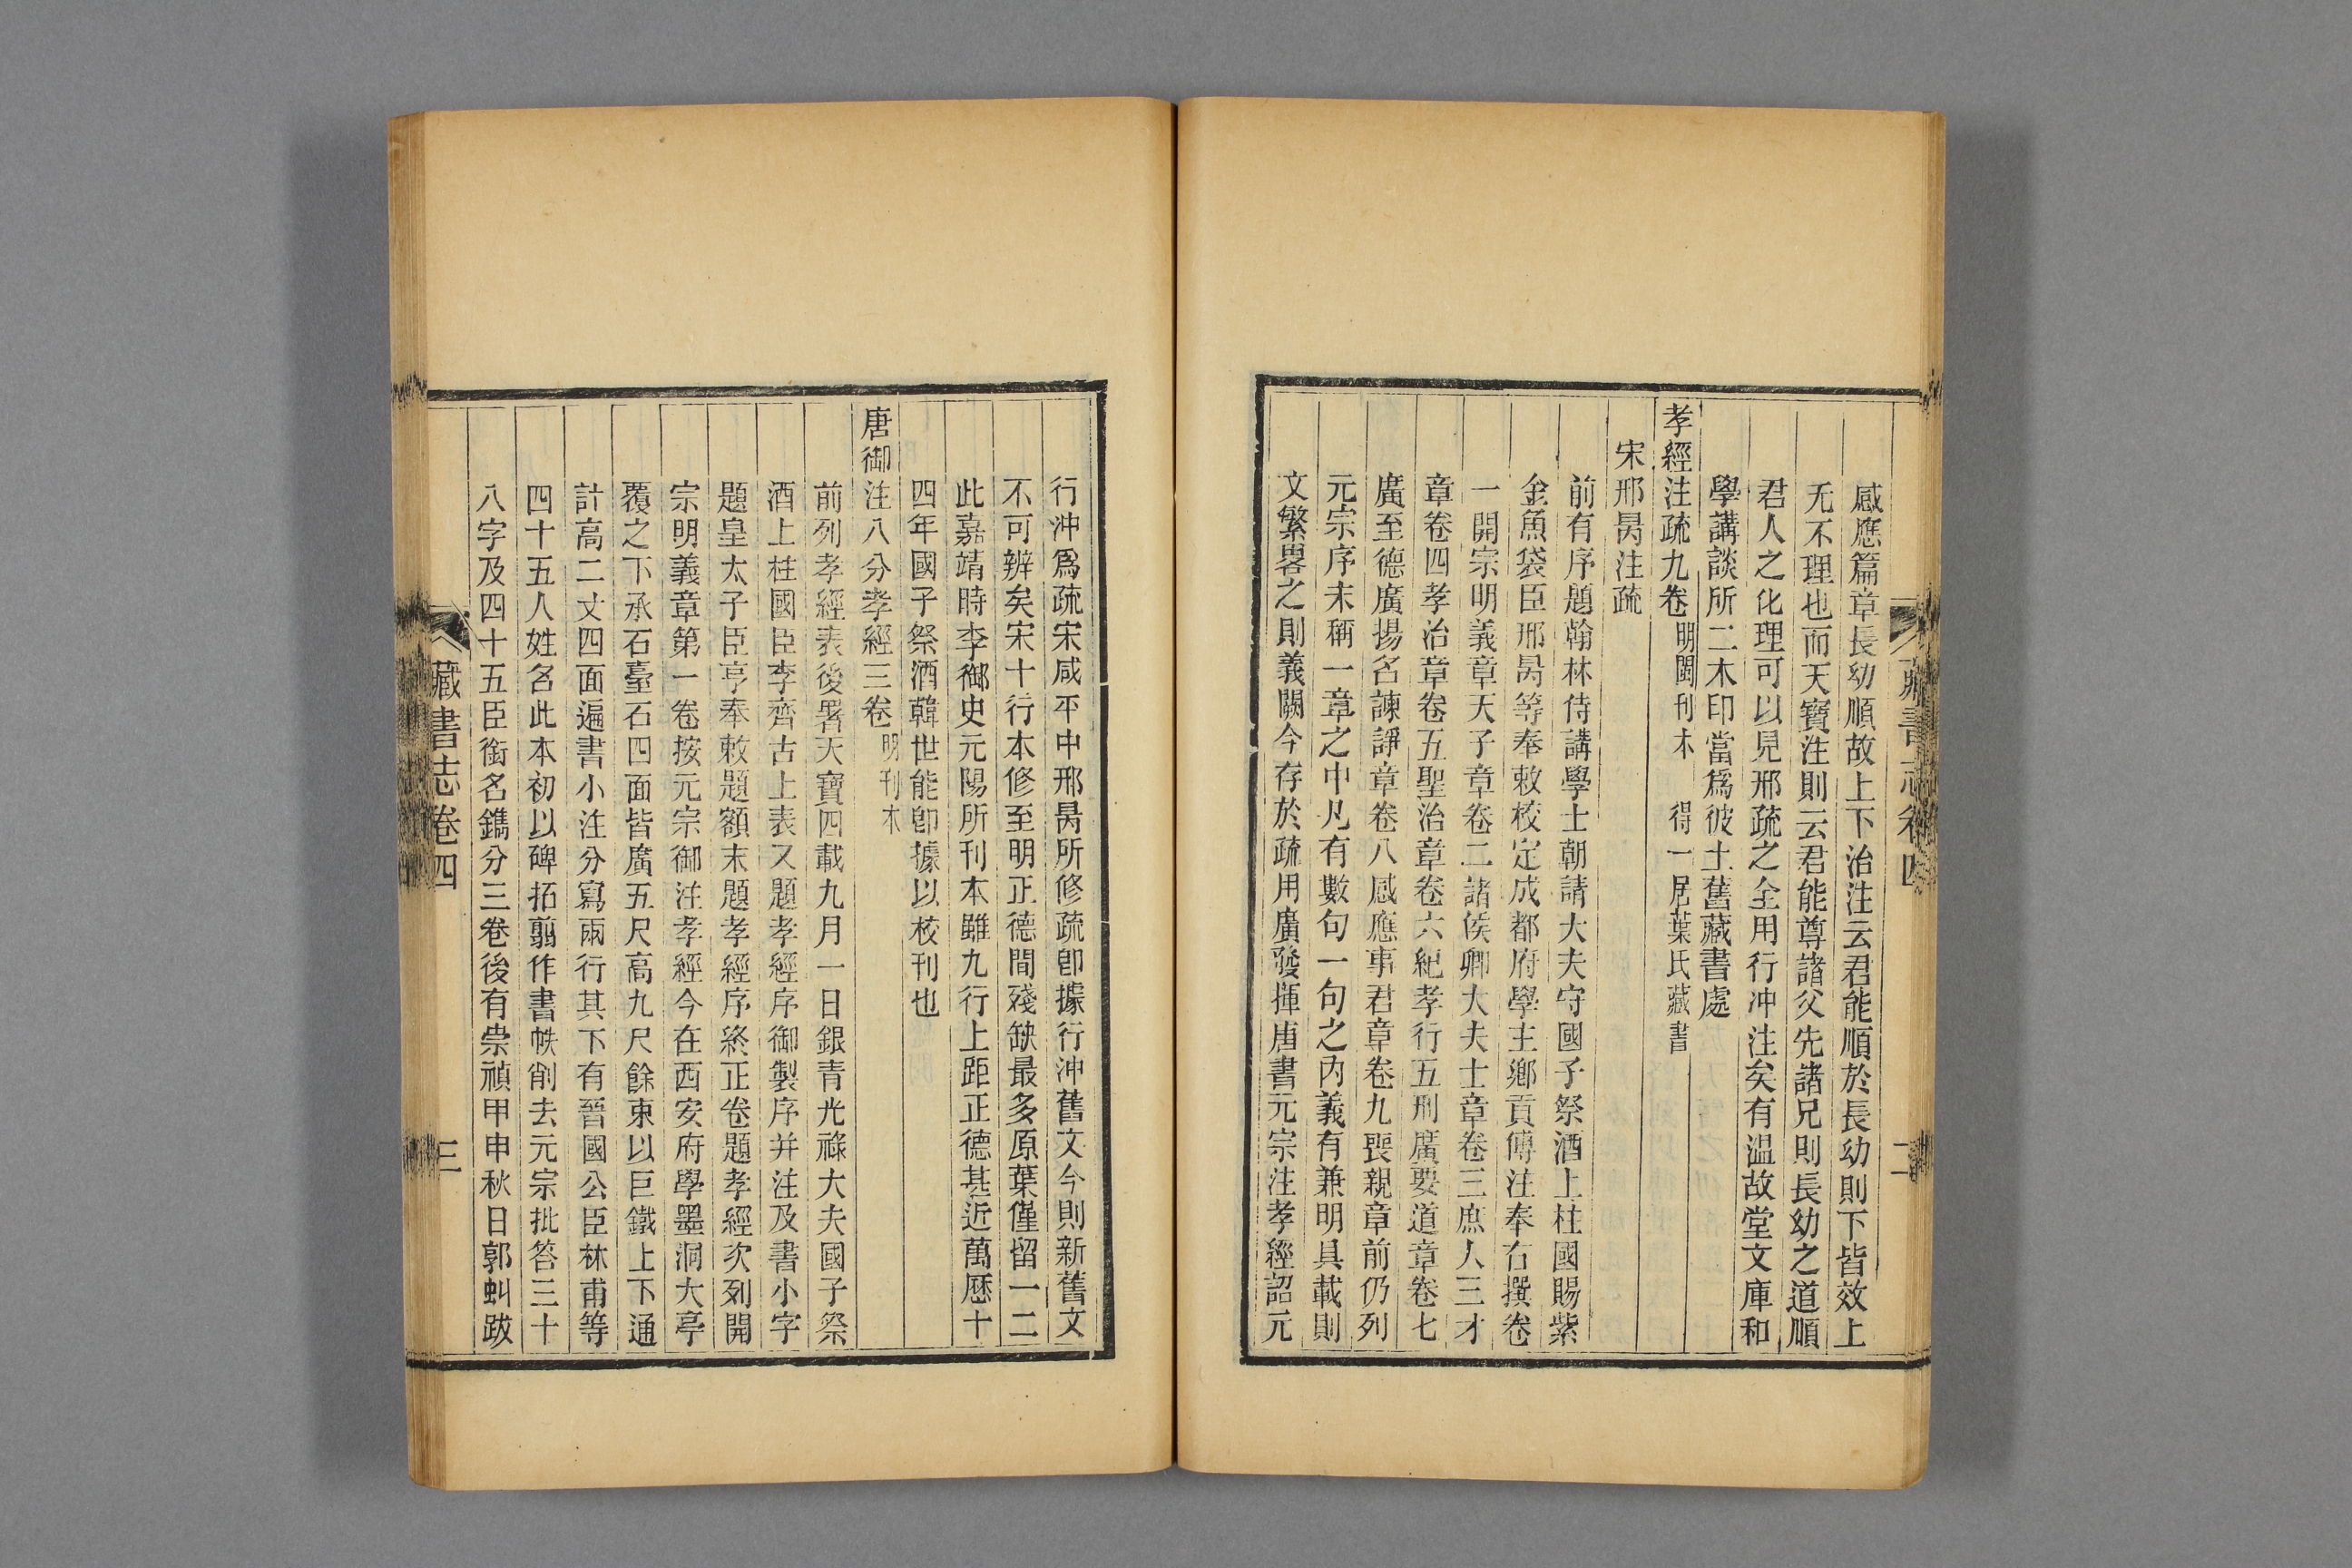 感應篇章長幼順故上下治注云君能順於長幼則下皆效上
无不理也而天寶注則云君能尊諸父先諸兄則長幼之道順
君人之化理可以見邢疏之全用行沖注矣有溫故堂文庫和
學講談所二木印當爲彼土舊藏書處
孝經注疏九卷 明閩刊本 得一居葉氏藏書
宋邢昺注疏
前有序題翰林侍講學士朝請大夫守國子祭酒上柱國賜紫
金魚袋臣邢昺等奉敕校定成都府學主鄉貢傅注奉右撰卷
一開宗明義章天子章卷二諸侯卿大夫士章卷三庶人三才
章卷四孝治章卷五聖治章卷六紀孝行五刑廣要道章卷七
廣至德廣揚名諫諍章卷八感應事君章卷九喪親章前仍列
元宗序末稱一章之中凡有數句一句之內義有兼明具載則
文繁畧之則義闕今存於疏用廣發揮唐書元宗注孝經詔元
藏書志卷四 二
行沖爲疏宋咸平中邢昺所修疏卽據行沖舊文今則新舊文
不可辨矣宋十行本修至明正德間殘缺最多原葉僅留一二
此嘉靖時李御史元陽所刊本雖九行上距正德甚近萬歷十
四年國子祭酒韓世能卽據以校刊也
唐御注八分孝經三卷 明刊本
前列孝經表後署天寶四載九月一日銀青光祿大夫國子祭
酒上柱國臣李齊古上表又題孝經序御製序并注及書小字
題皇太子臣亨奉敕題額末題孝經序終正卷題孝經次列開
宗明義章第一卷按元宗御注孝經今在西安府學墨洞大亭
覆之下承石臺石四面皆廣五尺高九尺餘束以巨鐵上下通
計高二丈四面遍書小注分寫兩行其下有晉國公臣林甫等
四十五人姓名此本初以碑拓翦作書帙削去元宗批答三十
八字及四十五臣銜名鐫分三卷後有崇禎甲申秋日郭虯跋
藏書志卷四 三